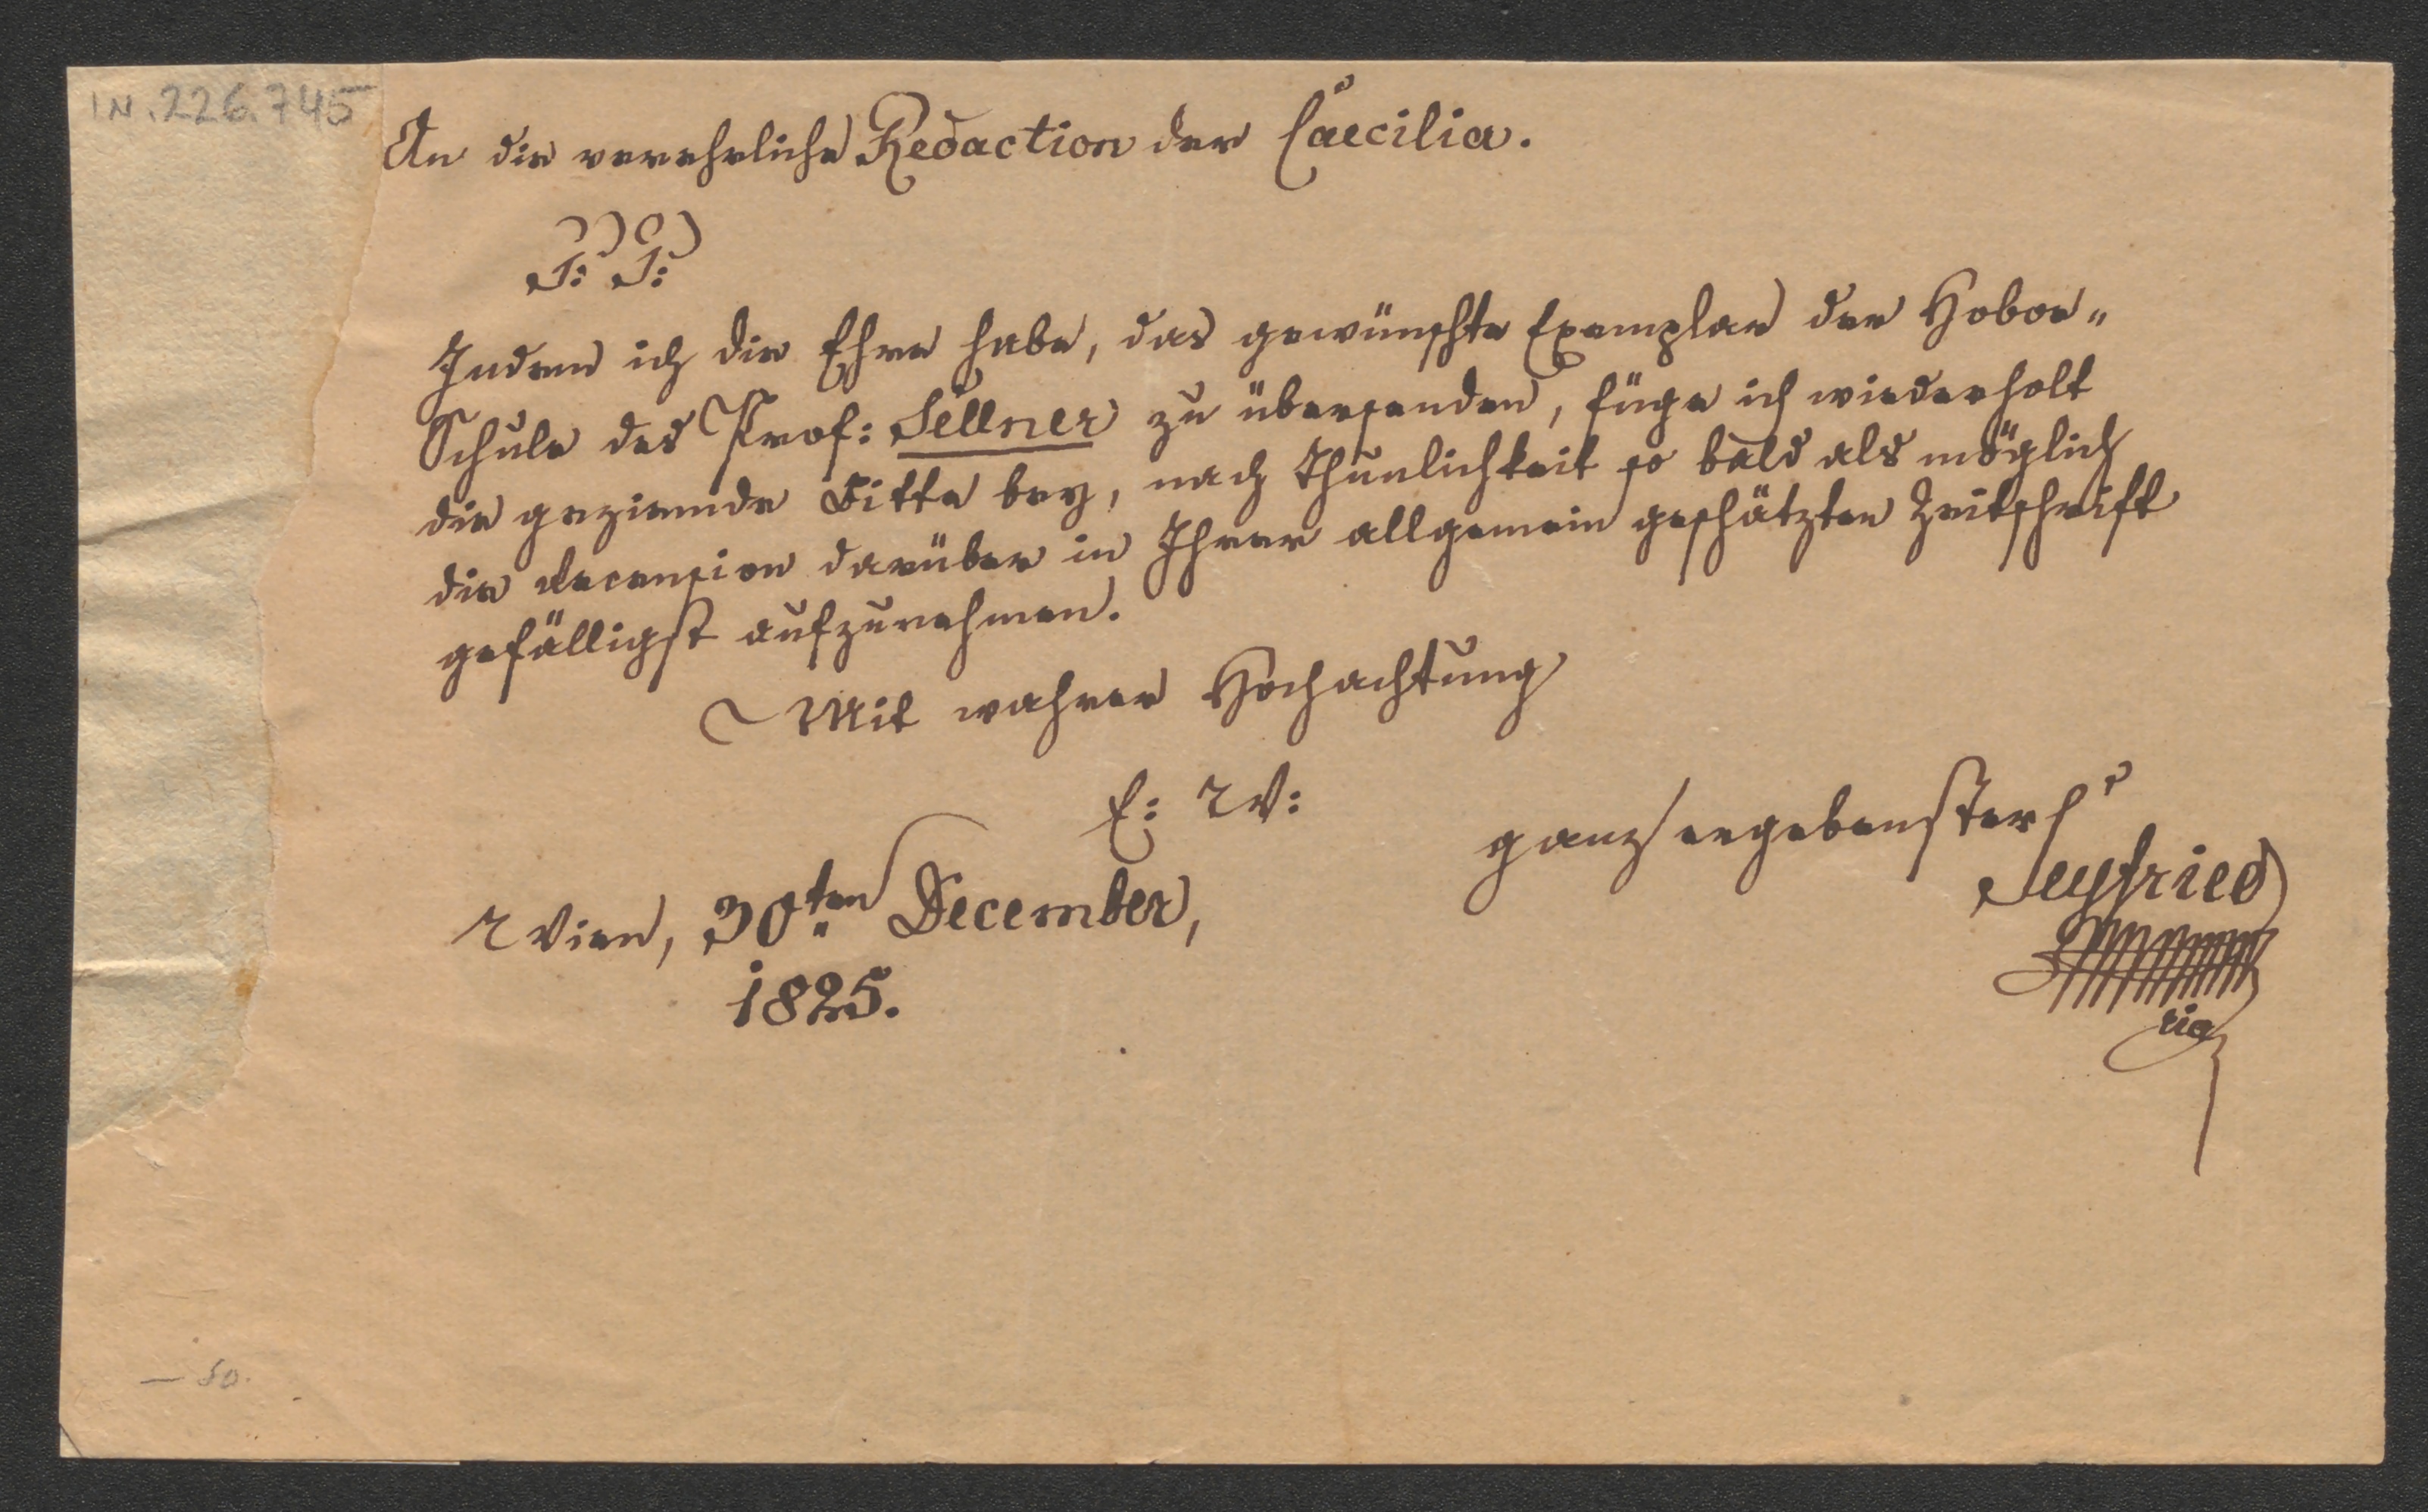 IN. 226.745
An die verehrliche Redaction der Caecilia.
P: P:
Indem ich die Ehre habe, das gewünschte Exemplar der Hoboe„
Schule des Prof: Sellner zu übersenden, füge ich wiederholt
die geziemende Bitte bey, nach Thunlichkeit so bald als möglich
die Recension darüber in Ihrer allgemein geschätzten Zeitschrift
gefälligst aufzunehmen.
Mit wahrer Hochachtung
E: W:
ganz ergebenster
Seyfried
Wien, 30ten December,
1825.
— 50.